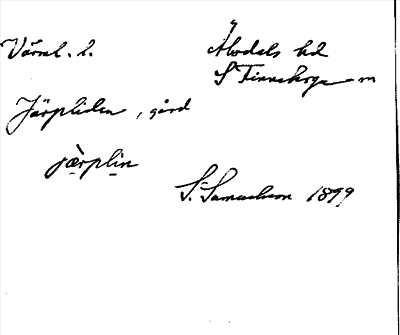 Värml. l. Älvdals hd
S Finnskoga sn
Järpliden, gård
jærplin
S. Samuelsson 1899